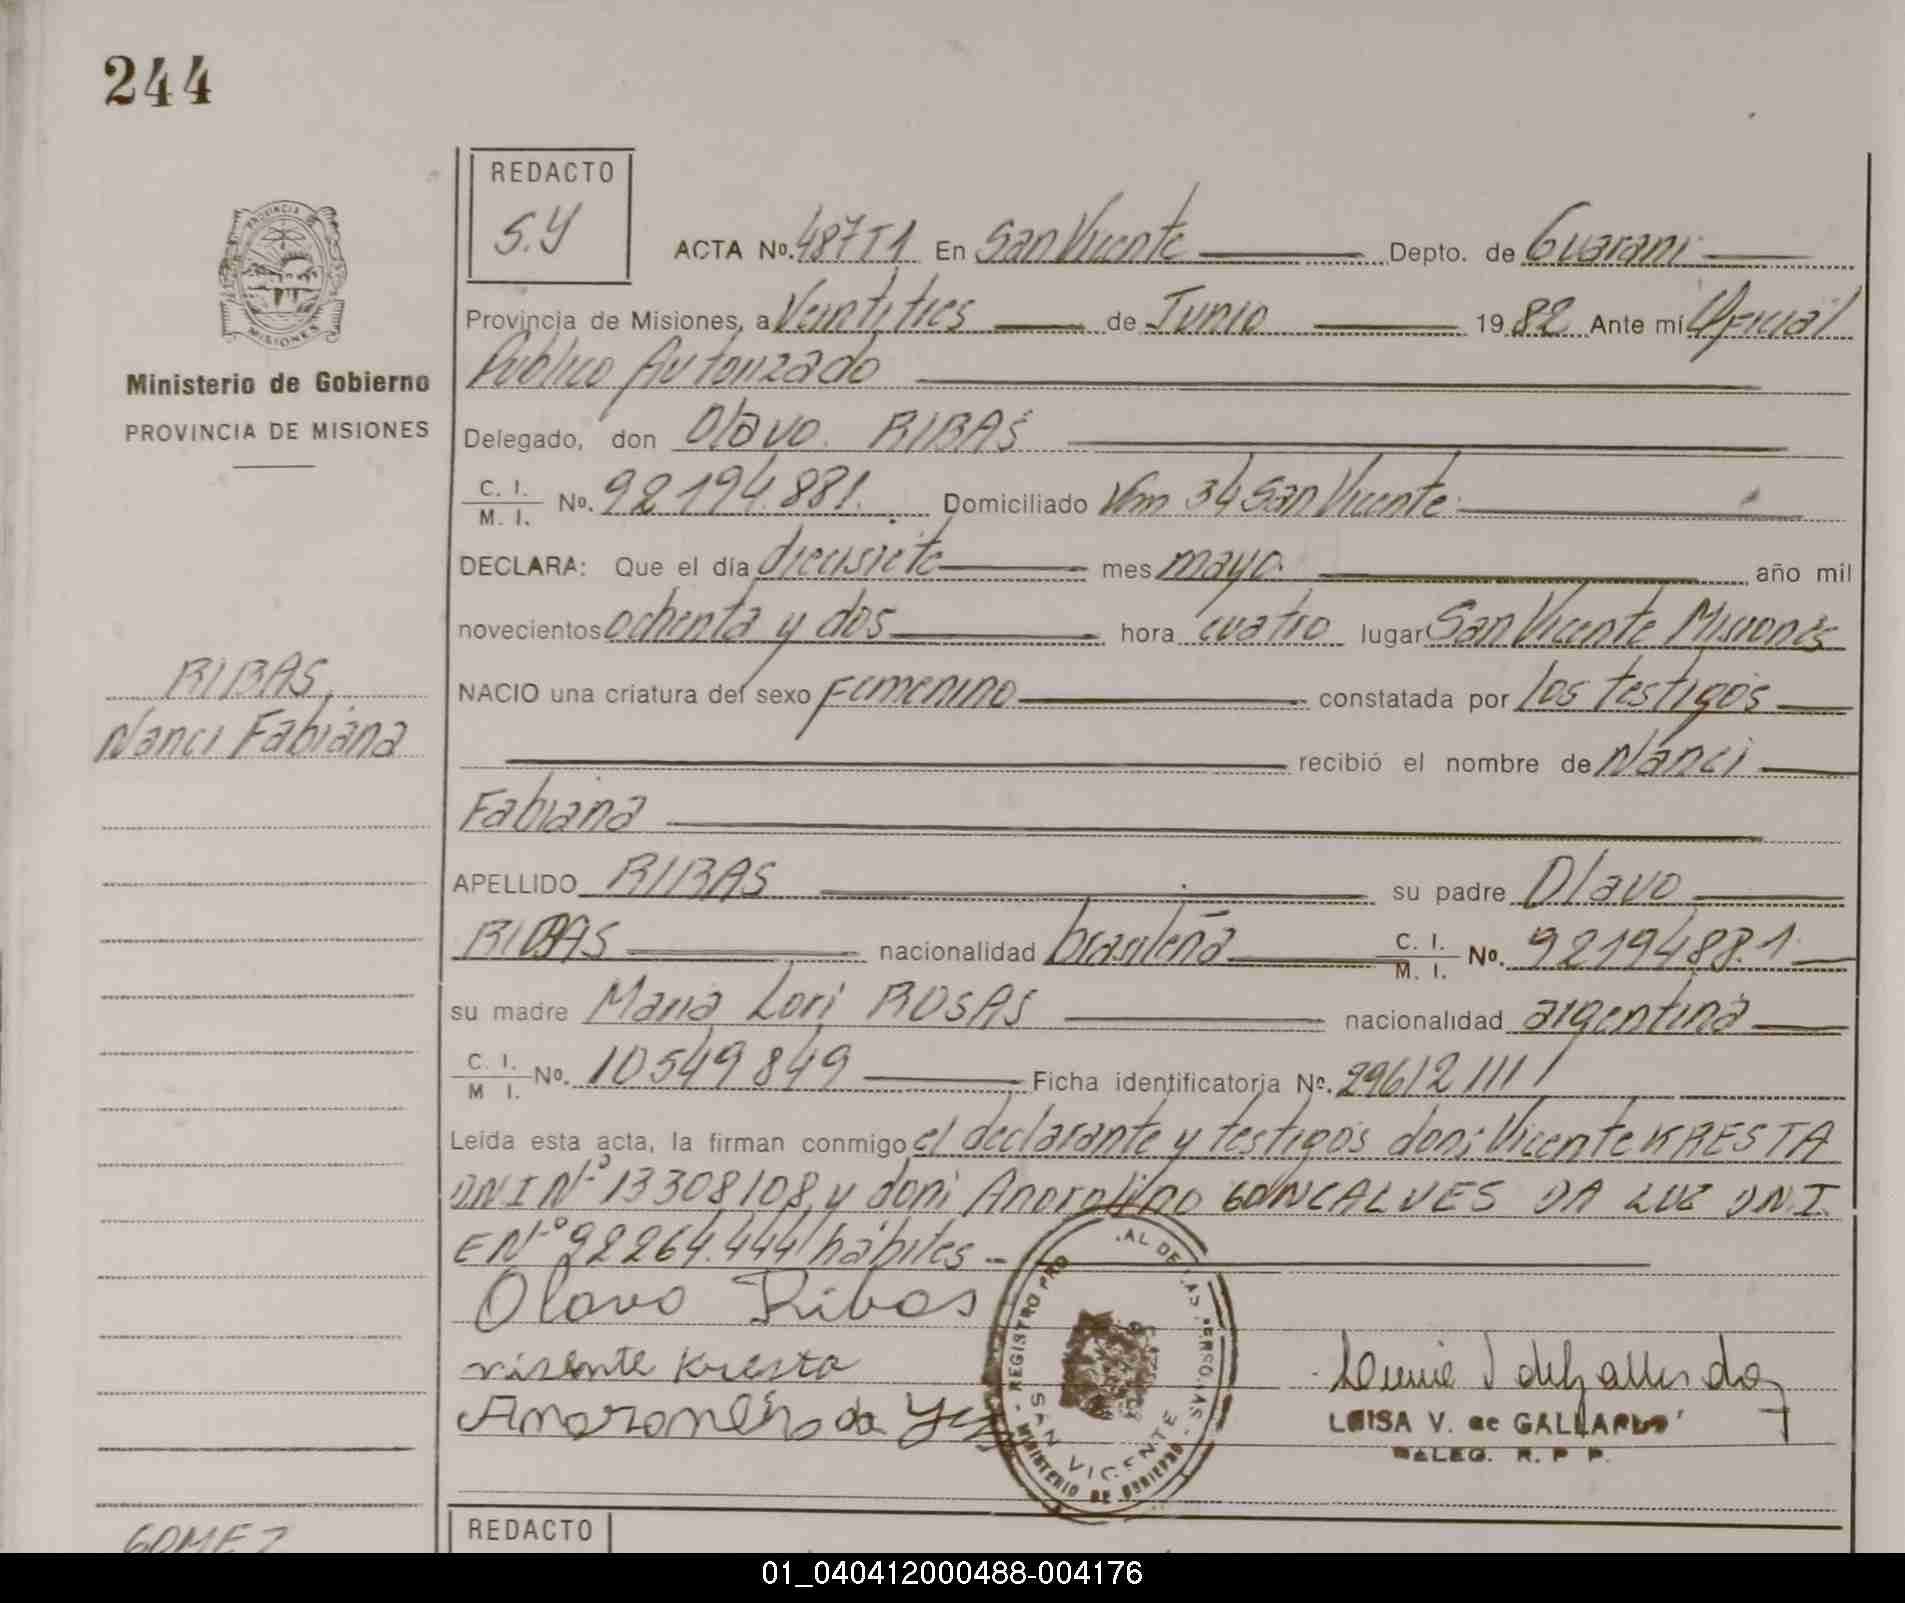 244
REDACTO
S.Y
PROVINCIA
MISIONES
Ministerio de Gobierno
PROVINCIA DE MISIONES
RIBAS,
Nanci Fabiana
ACTA No. 487 T1 En San Vicente Depto. de Guarani
Provincia de Misiones, a Veintitres de Junio 1982 Ante mí Oficial
Publico Autorizado
Delegado, don Olavo RIBAS
C. I. / M. I. No. 92.194.881. Domiciliado Km 34 San Vicente
DECLARA: Que el día diecisiete mes mayo año mil
novecientos ochenta y dos hora cuatro lugar San Vicente Misiones
NACIO una criatura del sexo Femenino constatada por los testigos
recibió el nombre de Nanci
Fabiana
APELLIDO RIBAS su padre Olavo
RIBAS nacionalidad brasileña C. I. / M. I. No. 92194881
su madre Maria Lori ROSAS nacionalidad argentina
C. I. / M I. No. 10549849 Ficha identificatoria No.
Leída esta acta, la firman conmigo el declarante y testigos don: Vicente KRESTA
D.N.I Nº 13308108 y don: GONCALVES DA LUZ D.N.I.
E Nº 92264.444 hábiles -
Olavo Ribas
visente Kresta
da
REGISTRO PRO AL DE LAS PERSONAS
MINISTERIO DE GOBIERNO
SAN VICENTE
LUISA V. de GALLARDO
DELEG. R. P P.
REDACTO
GOMEZ
01_040412000488-004176